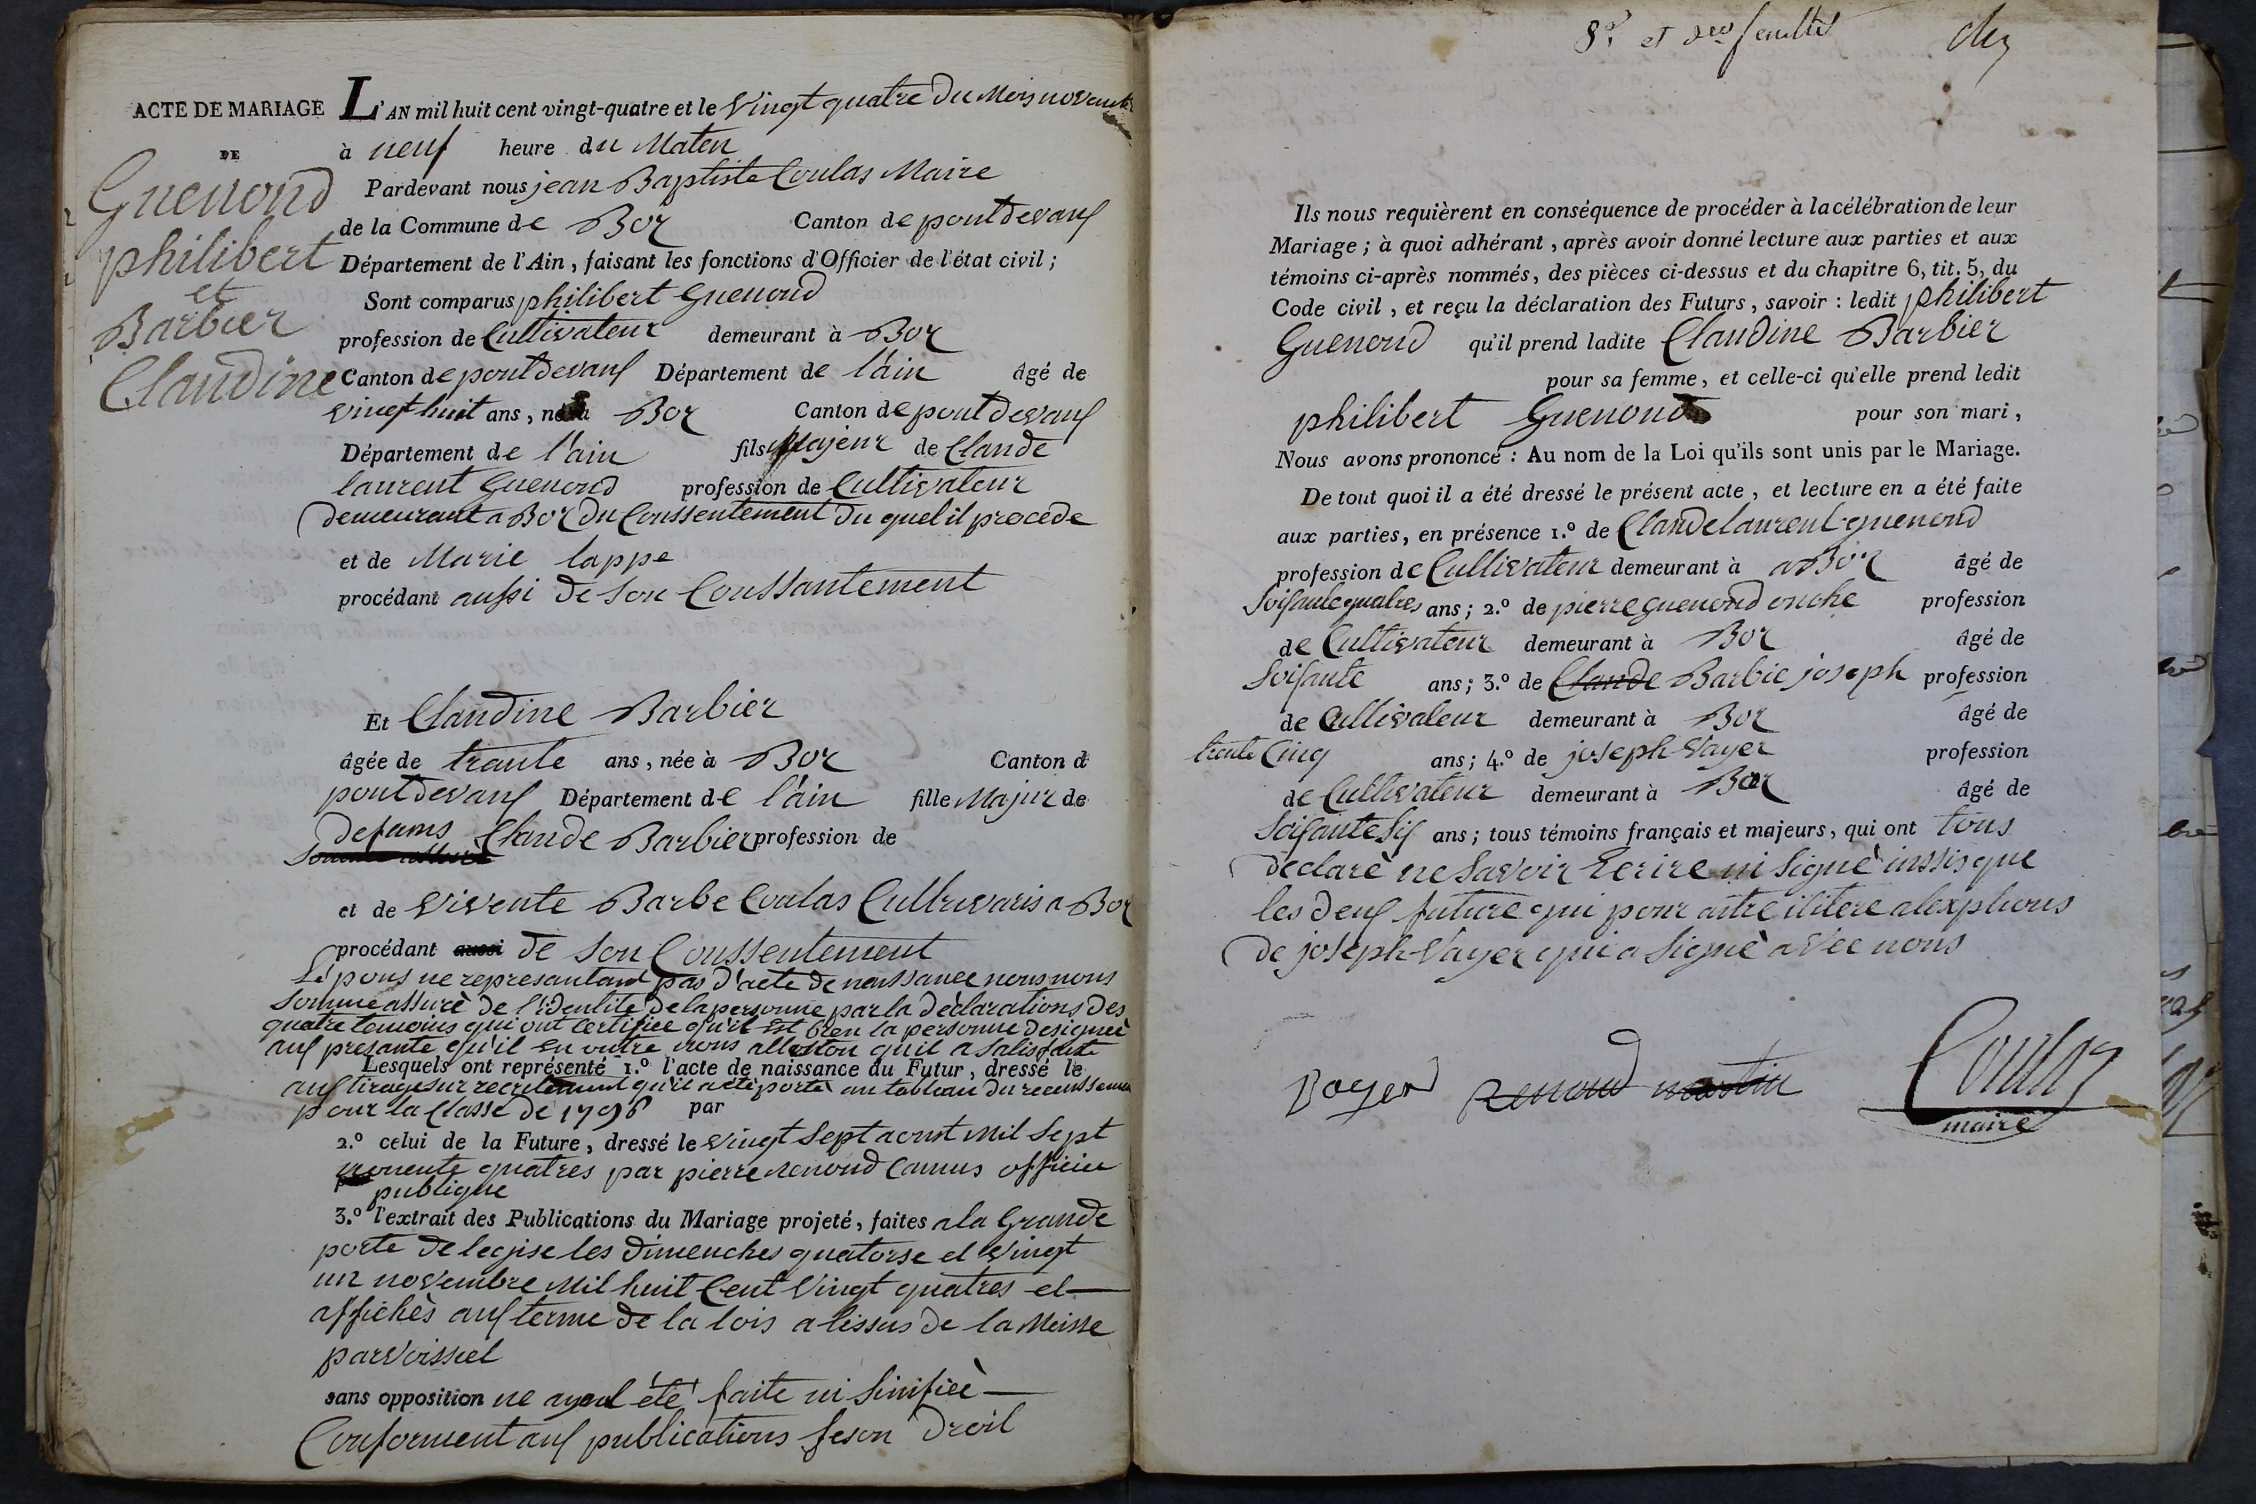 ACTE DE MARIAGE
DE
Guenond
philibert
et
Barbier
Claudine
L'AN mil huit cent vingt-quatre et le Vingt quatre Du Mois novembre
à neuf heure du Maten
Pardevant nous jean Baptiste Coulas Maire
de la Commune de Boz Canton de pontdevaux
Département de l'Ain, faisant les fonctions d'Officier de l'état civil;
Sont comparus philibert Guenond
profession de Cultivateur demeurant à Boz
Canton de pontdevaux Département de l'ain âgé de
vingt huit ans, né à Boz Canton de pontdevaux
Département de l'ain fils Majeur de Claude
laurent Guenond profession de Cultivateur
demeurant a Boz Du Conssentement Du quel il procede
et de Marie lappe
procédant aussi De son Conssantement
Et Claudine Barbier
âgée de trante ans, née à Boz Canton d
pontdevaux Département de l'ain fille Majur de
defunts Claude Barbier profession de
et de vivente Barbe Coulas Cultrivaris a Boz
procédant aussi de son Conssentement
L'épous ne represantant pas d'acte de naissance nous nous
somme assurè de l'identite de la personne par la déclarations des
quatre temoins qui ont certifiee qu'il est bien la personne designeè
aux presante qu'il en outre nous alleston quil a salisfaite
Lesquels ont représenté 1.º l'acte de naissance du Futur, dressé le
aux tirage sur recrutement qu'il a etè portè au tableau du recenssemen
pour la Classe de 1796 par
2.º celui de la Future, dressé le vingt sept aoust Mil sept
nonente quatres par pierre renond Camus officier
publique
3.º l'extrait des Publications du Mariage projeté, faites a la Grande
porte de legise les dimenches quatorse et vingt
un novembre Mil huit Cent Vingt quatres et
affichès aux terme de la lois a lissus de la Meisse
parvoissiel
sans opposition ne ayent été faite ni sinifièè
Conforment aux publications feson Droit
8e. et der feuilles
Ils nous requièrent en conséquence de procéder à la célébration de leur
Mariage; à quoi adhérant, après avoir donné lecture aux parties et aux
témoins ci-après nommés, des pièces ci-dessus et du chapitre 6, tit. 5, du
Code civil, et reçu la déclaration des Futurs, savoir: ledit philibert
Guenond qu'il prend ladite Claudine Barbier
pour sa femme, et celle-ci qu'elle prend ledit
philibert Guenond pour son mari,
Nous avons prononcé: Au nom de la Loi qu'ils sont unis par le Mariage.
De tout quoi il a été dressé le présent acte, et lecture en a été faite
aux parties, en présence 1.º de Claude laurent guenond
profession de Cultivateur demeurant à a Boz âgé de
Soisante quatres ans; 2.º de pierre guenond onche profession
de Cultivateur demeurant à Boz âgé de
Soisante ans; 3.º de Claude Barbie joseph profession
de Cultivateur demeurant à Boz âgé de
trente Cinq ans; 4.º de joseph Vayer profession
de Cultivateur demeurant à Boz âgé de
Soisante Six ans; tous témoins français et majeurs, qui ont tous
déclarè ne savoir Ecrire ni signè inssis que
les deux future qui pour aitre ilitere alexptions
de joseph Vayer qui a signè avec nous
Voyer renoud martin Coulas
maire